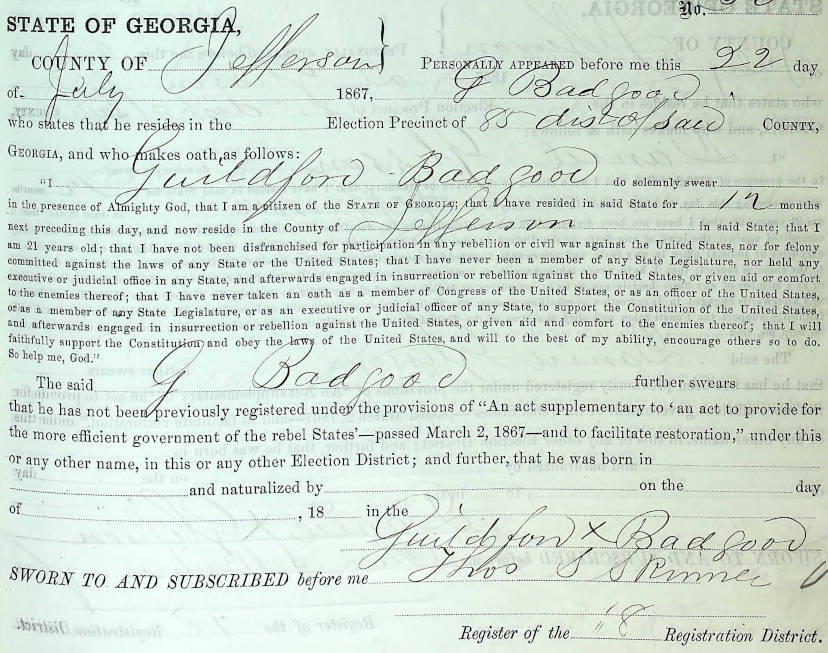 No.
STATE OF GEORGIA,
COUNTY OF Jefferson } PERSONALLY APPEARED before me this 22 day
of July 1867, G Badgood
who states that he resides in the Election Precinct of 85 dist of said COUNTY,
GEORGIA, and who makes oath as follows:
"I Guildford Badgood do solemnly swear
in the presence of Almighty God, that I am a citizen of the STATE OF GEORGIA; that I have resided in said State for 12 months
next preceding this day, and now reside in the County of Jefferson in said State; that I
am 21 years old; that I have not been disfranchised for participation in any rebellion or civil war against the United States, nor for felony
committed against the laws of any State or the United States; that I have never been a member of any State Legislature, nor held any
executive or judicial office in any State, and afterwards engaged in insurrection or rebellion against the United States, or given aid or comfort
to the enemies thereof; that I have never taken an oath as a member of Congress of the United States, or as an officer of the United States,
or as a member of any State Legislature, or as an executive or judicial officer of any State, to support the Constitution of the United States,
and afterwards engaged in insurrection or rebellion against the United States, or given aid and comfort to the enemies thereof; that I will
faithfully support the Constitution and obey the laws of the United States, and will to the best of my ability, encourage others so to do.
So help me, God."
The said G Badgood further swears
that he has not been previously registered under the provisions of "An act supplementary to 'an act to provide for
the more efficient government of the rebel States'—passed March 2, 1867—and to facilitate restoration," under this
or any other name, in this or any other Election District; and further, that he was born in
and naturalized by on the day
of , 18 in the
Guildford x Badgood
SWORN TO AND SUBSCRIBED before me Thos S Skinner
Register of the "18 Registration District.